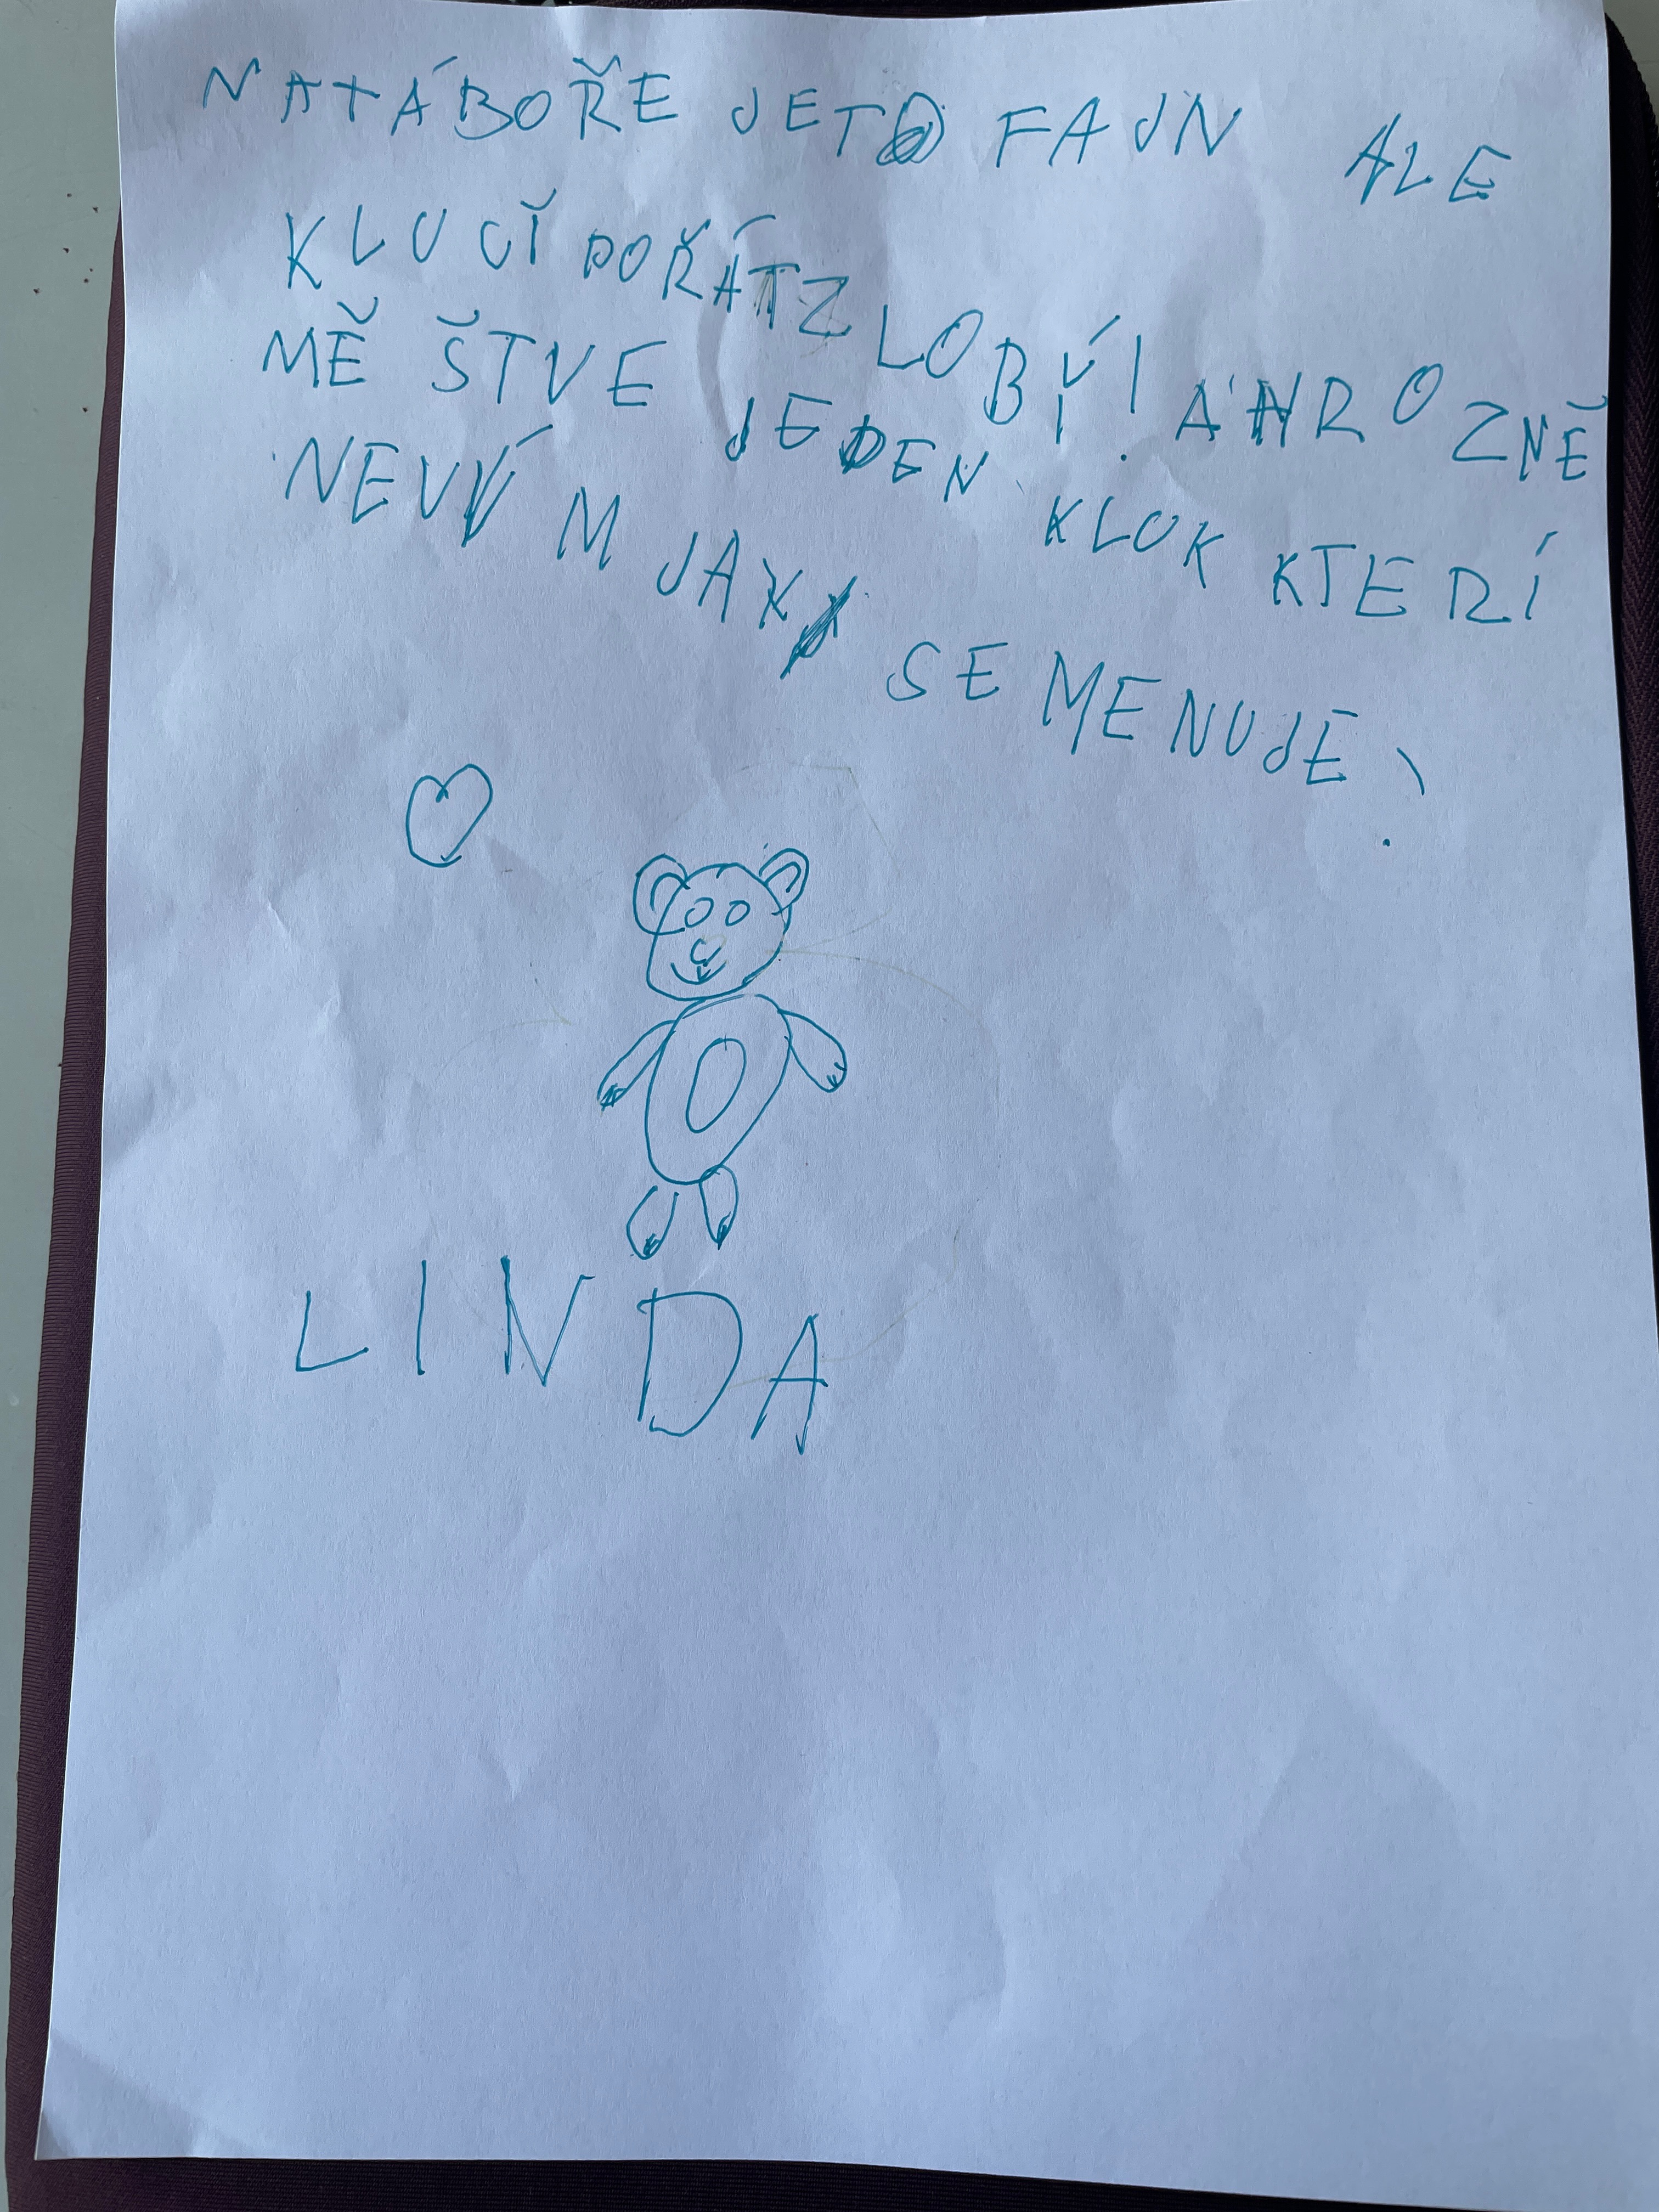 NATÁBOŘE JETO FAJN ALE
KLUCĬ POŘÁTZLOBÝ! A HROZNĚ
MĚ ŠTVE JEDEN KLUK KTERÍ
NEVÝM JAK SE MENUJE!
LINDA